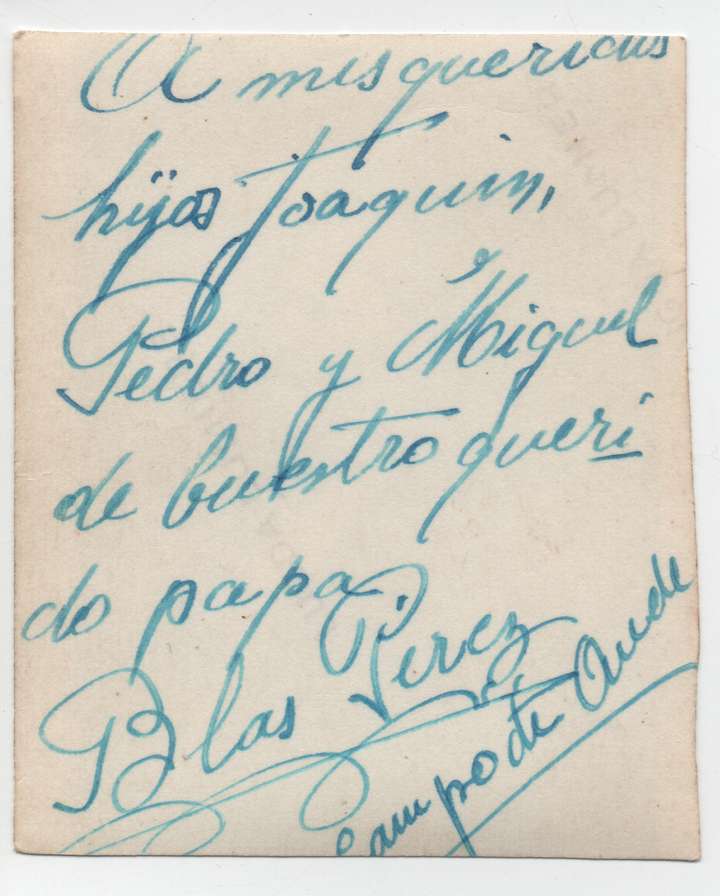 A mis queridus
hijos Joaquin,
Pedro y Miguel
de buestro queri
do papa
Blas Perez
Campo de Aude